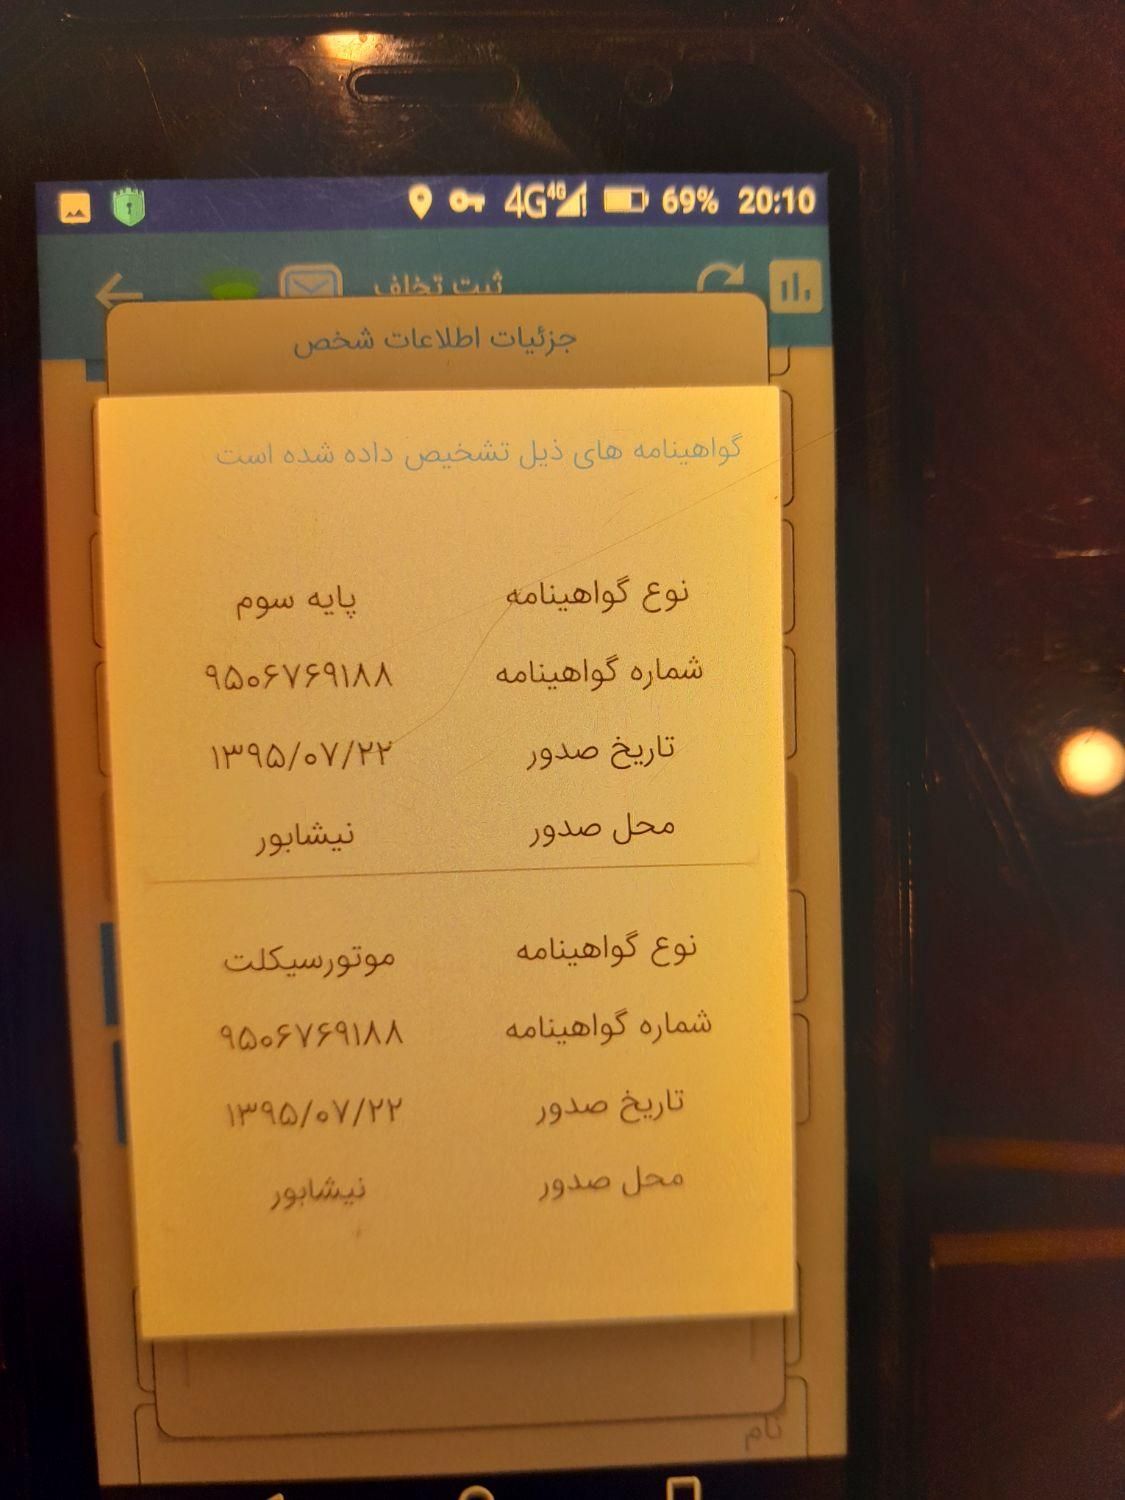 4G 4G 69% 20:10
ثبت تخلف
جزئیات اطلاعات شخص
گواهینامه های ذیل تشخیص داده شده است
نوع گواهینامه پایه سوم
شماره گواهینامه ۹۵۰۶۷۶۹۱۸۸
تاریخ صدور ۱۳۹۵/۰۷/۲۲
محل صدور نیشابور
نوع گواهینامه موتورسیکلت
شماره گواهینامه ۹۵۰۶۷۶۹۱۸۸
تاریخ صدور ۱۳۹۵/۰۷/۲۲
محل صدور نیشابور
نام